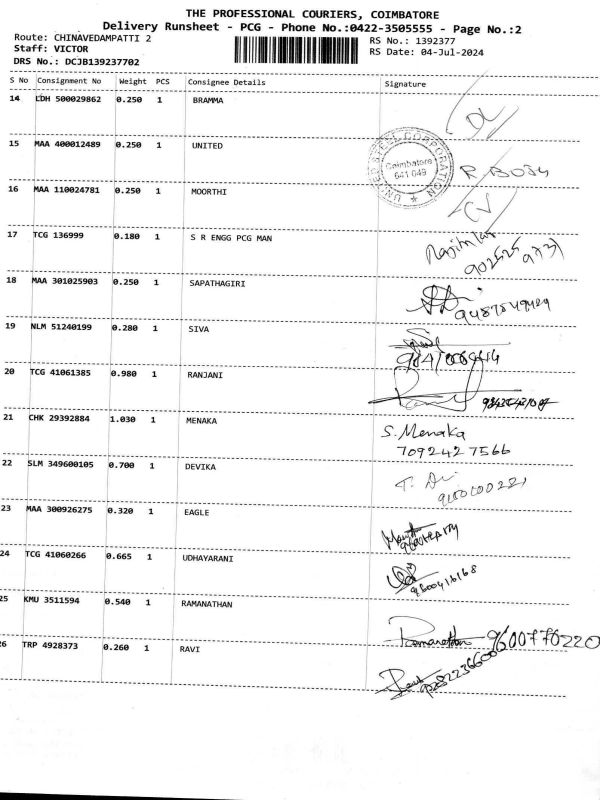 THE PROFESSIONAL COURIERS, COIMBATORE
Delivery Runsheet - PCG - Phone No.:0422-3505555 - Page No.:2
Route: CHINAVEDAMPATTI 2
Staff: VICTOR
DRS No.: DCJB139237702
RS No.: 1392377
RS Date: 04-Jul-2024
S No Consignment No Weight PCS Consignee Details Signature
14 LDH 500029862 0.250 1 BRAMMA
15 MAA 400012489 0.250 1 UNITED
UNITED STEEL CORPORATION
Coimbatore
641 049
16 MAA 110024781 0.250 1 MOORTHI
17 TCG 136999 0.180 1 S R ENGG PCG MAN
18 MAA 301025903 0.250 1 SAPATHAGIRI
19 NLM 51240199 0.280 1 SIVA
20 TCG 41061385 0.980 1 RANJANI
21 CHK 29392884 1.030 1 MENAKA
S. Menaka
7092427566
22 SLM 349600105 0.700 1 DEVIKA
23 MAA 300926275 0.320 1 EAGLE
24 TCG 41060266 0.665 1 UDHAYARANI
9600416168
25 KMU 3511594 0.540 1 RAMANATHAN
Ramanathan 9600770220
26 TRP 4928373 0.260 1 RAVI